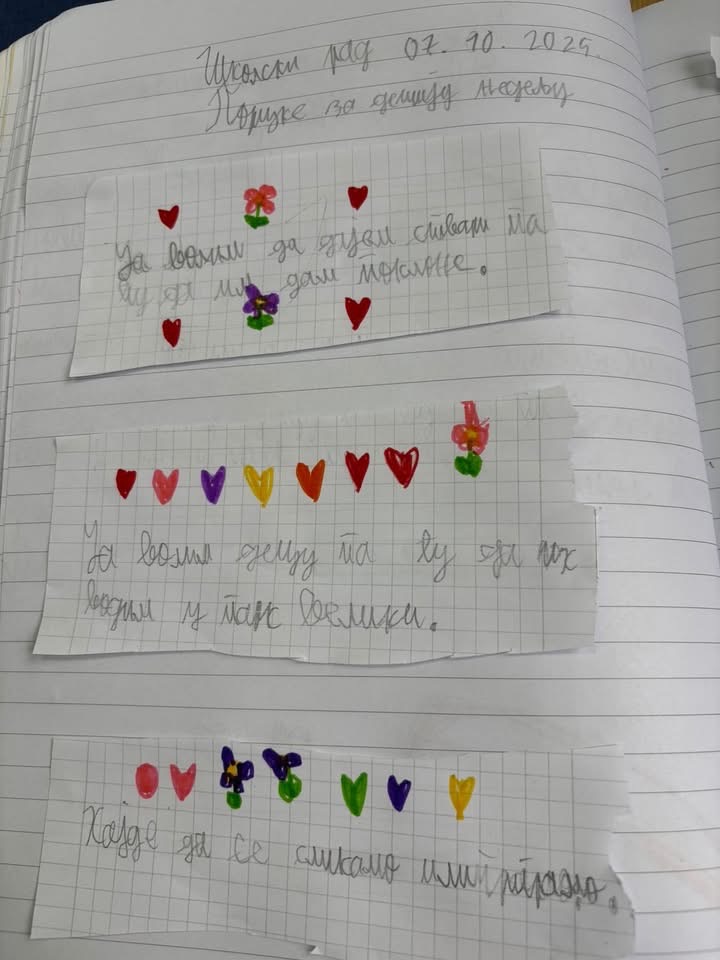 Школски рад 07. 10. 2025.
Поруке за дечију недељу
Ја волим да децом ставам па
ћу да им дам поклоне.
Ја волим децу па ћу да их
водим у парк велики.
Хајде да се сликамо или